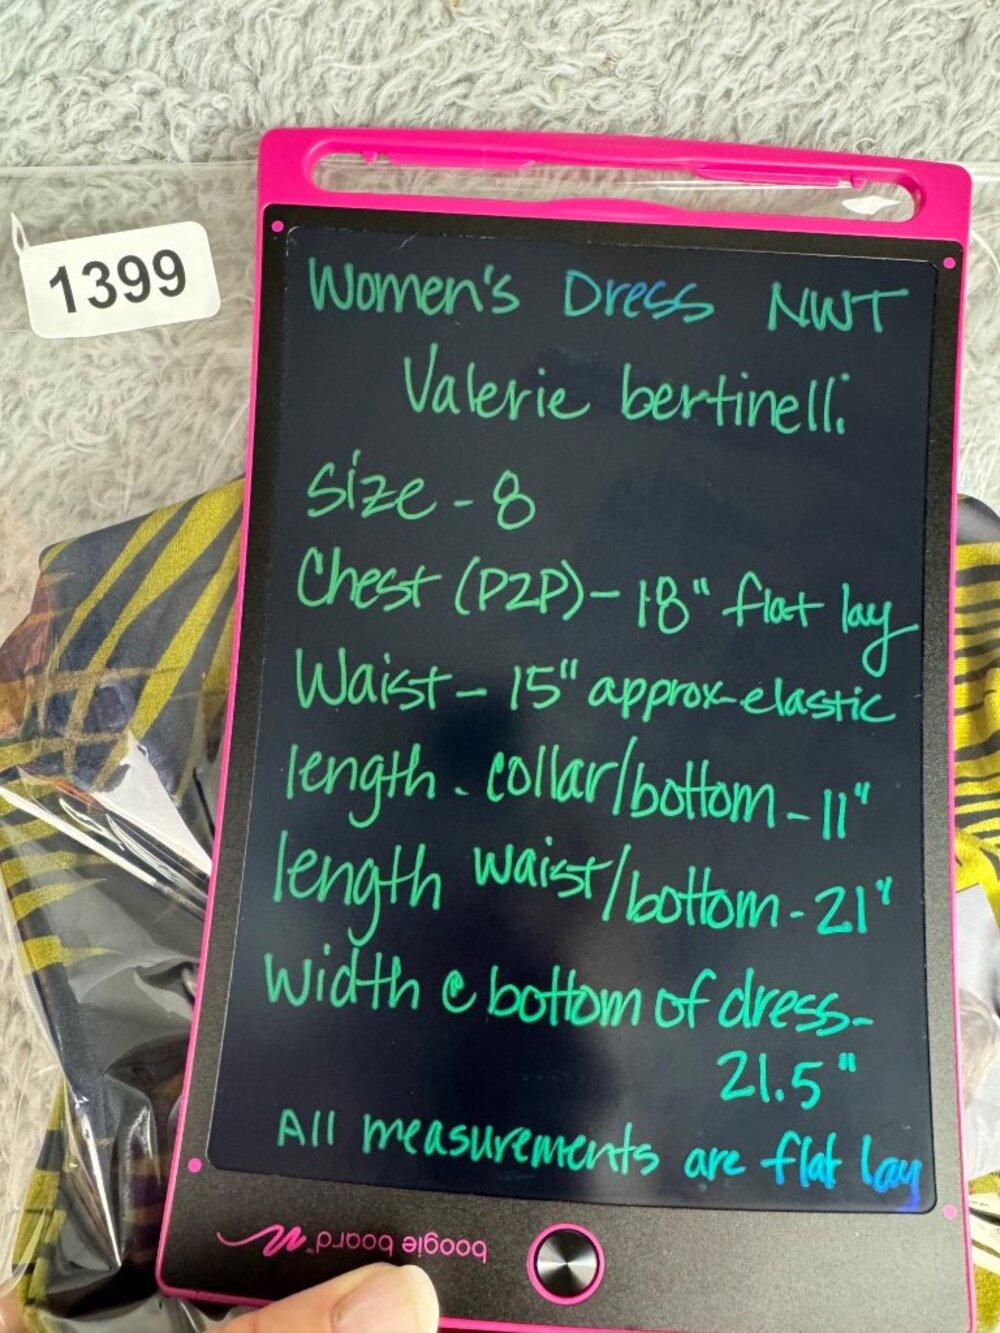 1399
Women's Dress NWT
Valerie bertinelli
size - 8
Chest (P2P) - 18" flat lay
Waist - 15" approx-elastic
length - collar/bottom - 11"
length waist/bottom - 21"
width @ bottom of dress -
21.5"
All measurements are flat lay
boogie board™